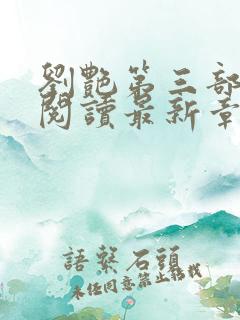 劉艷第三部
閱讀最新章
語繫石頭
未經同意禁止轉載